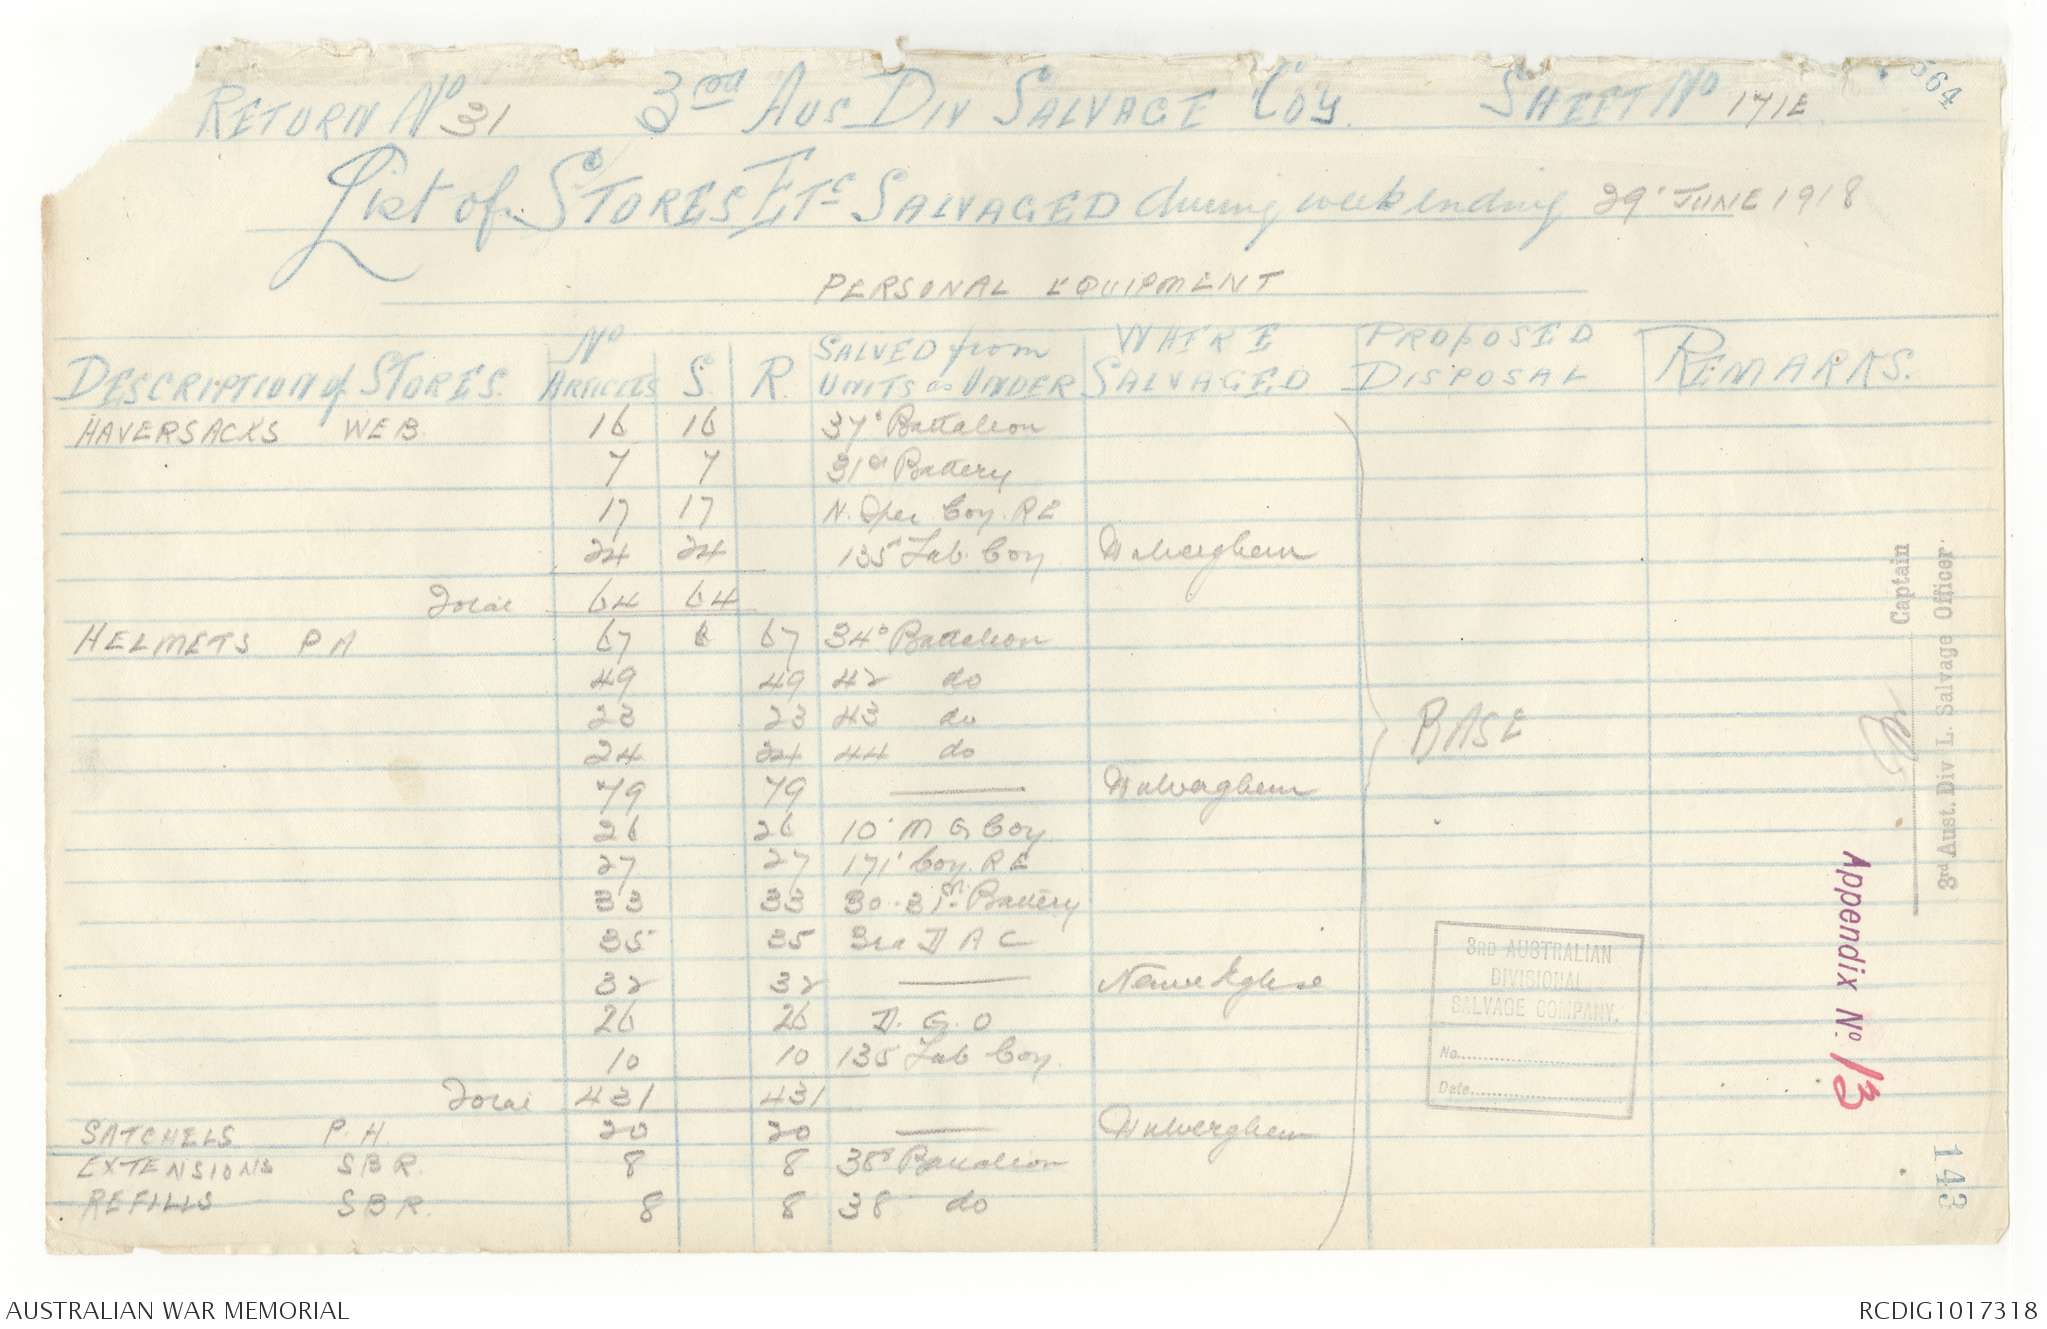 RETURN No 31 3rd AUS DIV SALVAGE COY. SHEET No 171E
564
List of STORES ETC SALVAGED during week ending 29' JUNE 1918
PERSONAL EQUIPMENT
DESCRIPTION of STORES. No ARTICLES S. R. SALVED from UNITS as UNDER WHERE SALVAGED PROPOSED DISPOSAL REMARKS.
HAVERSACKS WEB. 16 16 37' Battalion
7 7 31st Battery
17 17 N. Spec Coy. R E
24 24 135' Lab. Coy
Total 64 64
HELMETS P H 67 67 34' Battalion
49 49 42 do
23 23 43 do
24 24 44 do
BASE
79 79 ——
26 26 10' M G Coy
27 27 171' Coy. R E
33 33 30. 31st. Battery
35 35 3rd D A C
32 32 ——
26 26 D. G. O
10 10 135 Lab Coy.
Total 431 431
SATCHELS P. H. 20 20 ——
EXTENSIONS S B R. 8 8 38' Battalion
REFILLS S B R. 8 8 38 do
Captain
3rd Aust. Div L. Salvage Officer.
3RD AUSTRALIAN
DIVISIONAL
SALVAGE COMPANY.
No.
Date
Appendix No. 13
143
AUSTRALIAN WAR MEMORIAL RCDIG1017318